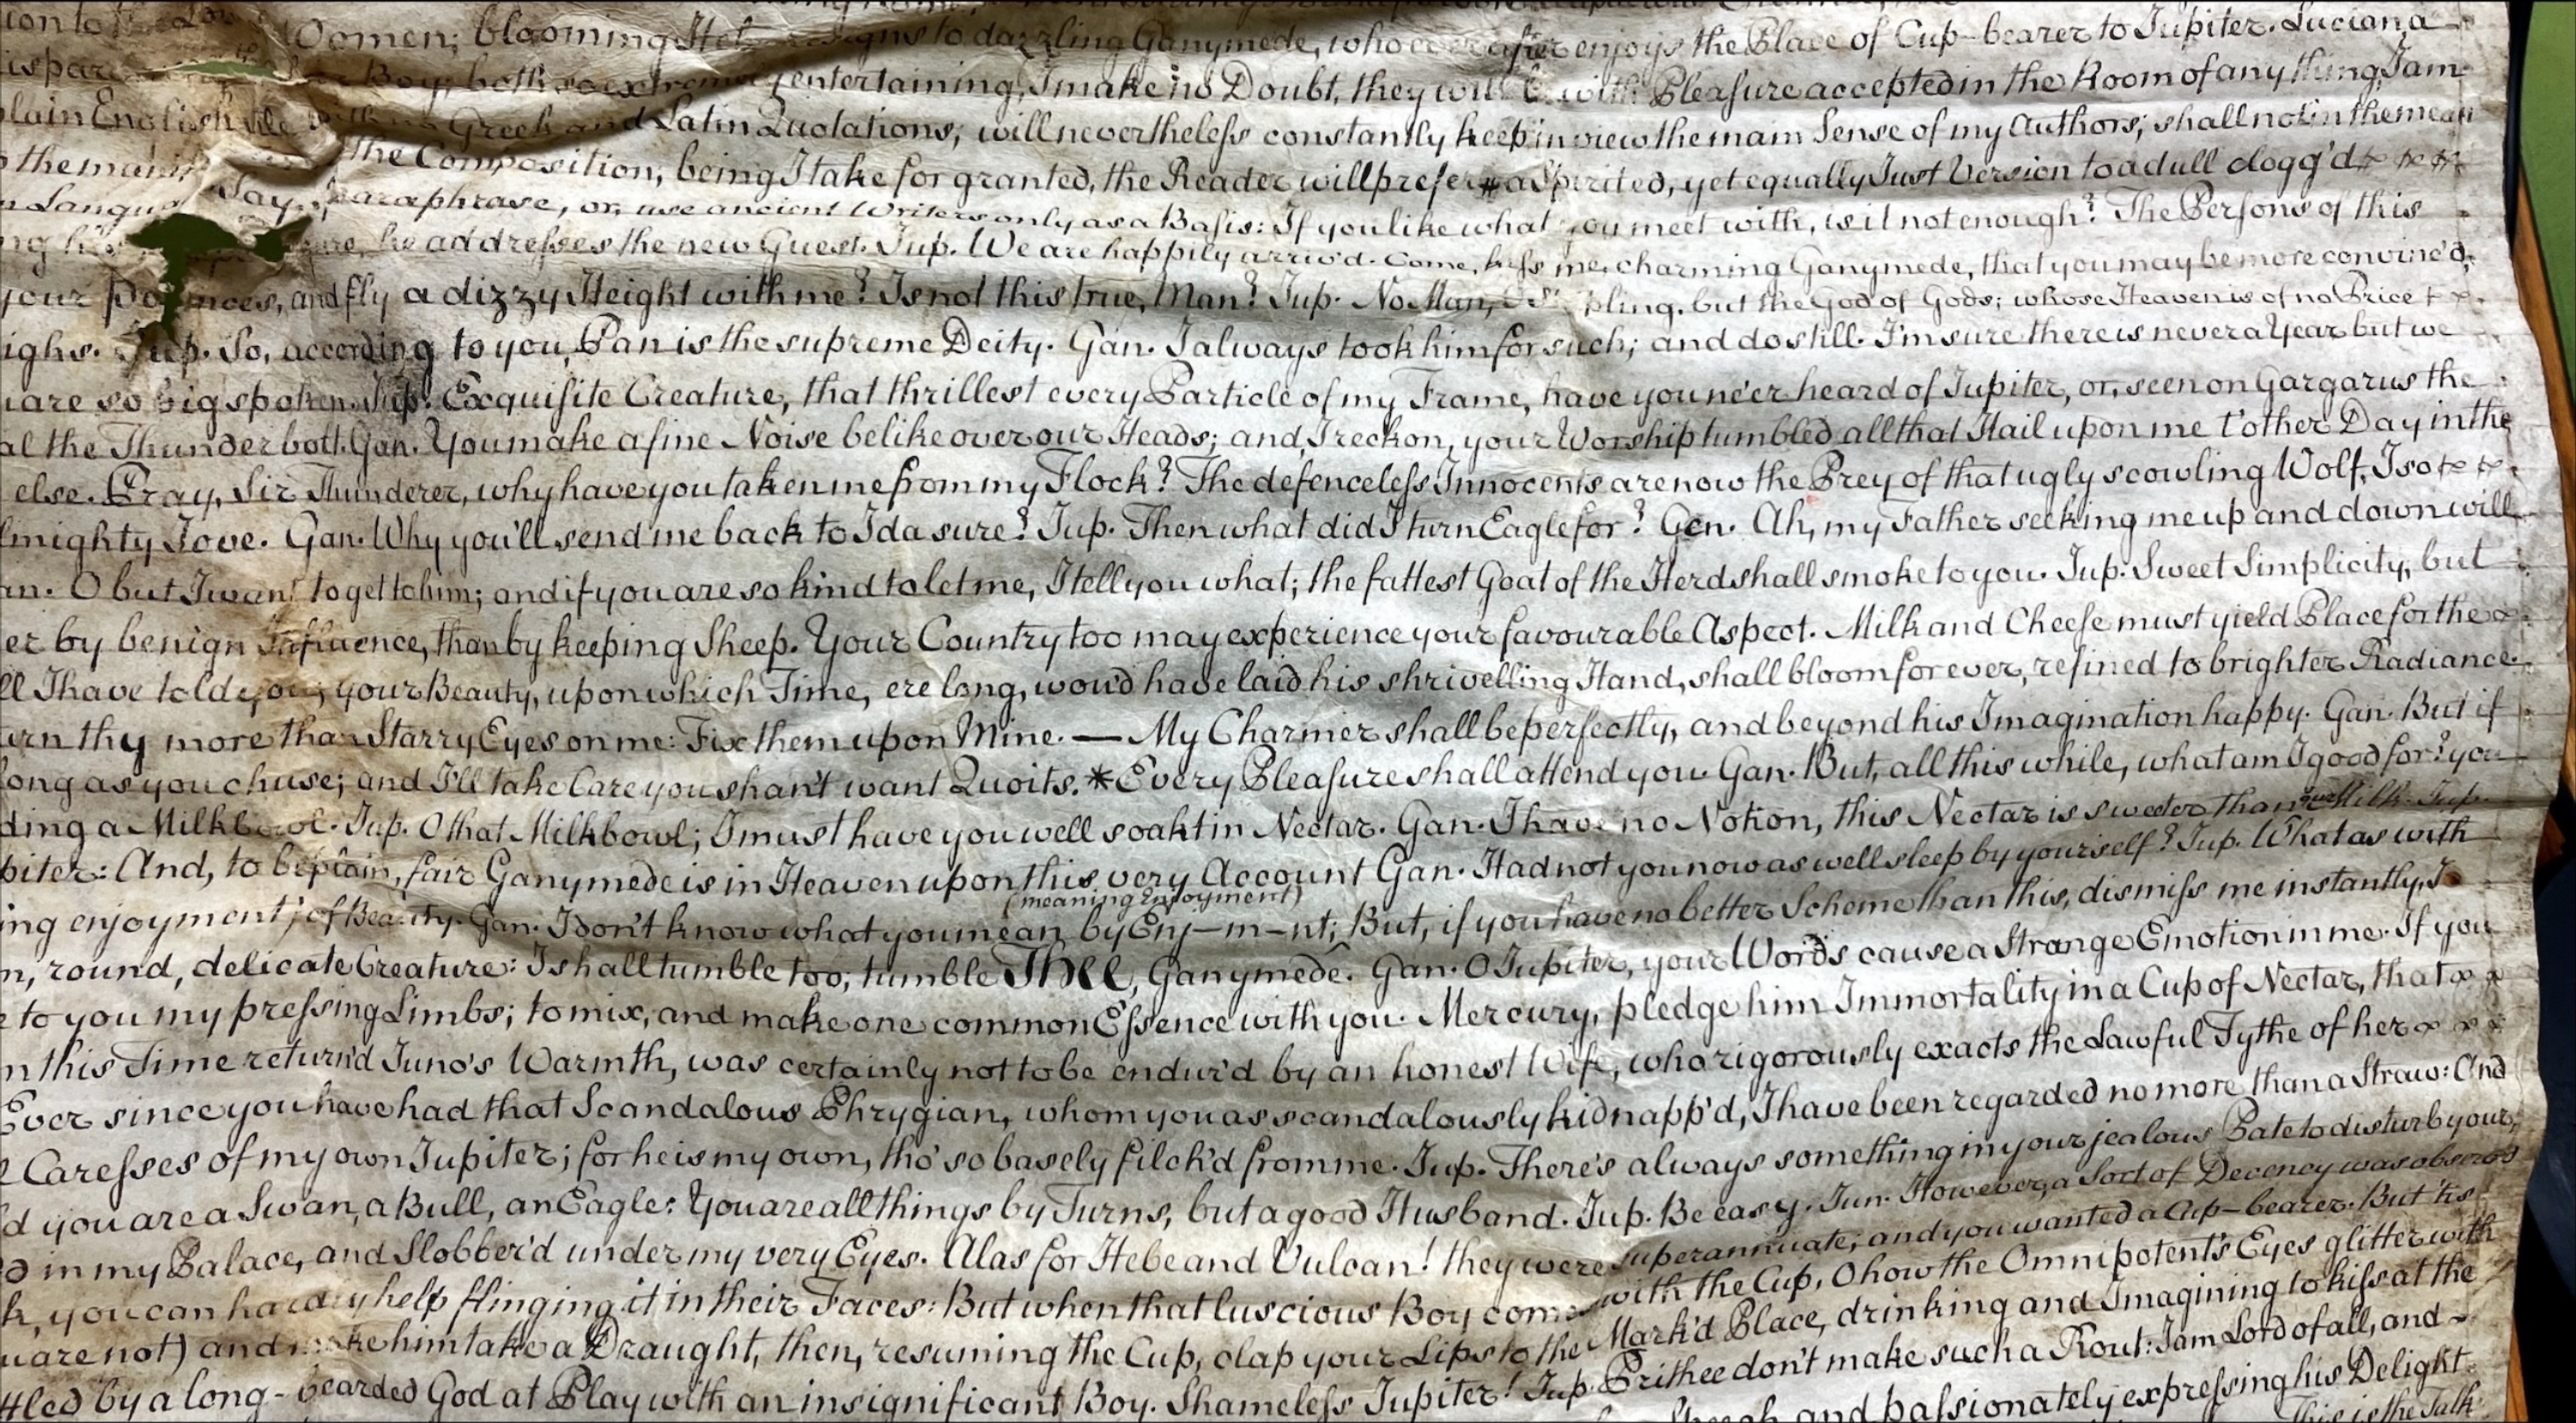 Women; blooming to dazzling Ganymede, who ever after enjoys the Place of Cup-bearer to Jupiter. Lucian, a
Boy; both so extremely entertaining, I make no Doubt, they will be with Pleasure accepted in the Room of any thing I am
plain English with no Greek and Latin Quotations; will nevertheless constantly keep in view the main Sense of my Authors; shall not in the mean
the Composition; being I take for granted, the Reader will prefer a Spirited, yet equally Just Version to a dull dogg'd
Say, paraphrase, or, use ancient Writers only as a Basis: If you like what you meet with, is it not enough? The Persons of this
he addresses the new Guest. Jup. We are happily arriv'd. Come, kiss me, charming Ganymede, that you may be more convinc'd,
your and fly a dizzy Height with me? Is not this true, Man? Jup. No Man, Stripling, but the God of Gods; whose Heaven is of no Price
Jup. So, according to you, Pan is the supreme Deity. Gan. I always took him for such; and do still. I'm sure there is never a Year but we
are so big spoken. Jup. Exquisite Creature, that thrillest every Particle of my Frame, have you ne'er heard of Jupiter, or, seen on Gargarus the
the Thunderbolt. Gan. You make a fine Noise belike over our Heads; and, I reckon, your Worship tumbled all that Hail upon me t'other Day in the
else. Pray, Sir Thunderer, why have you taken me from my Flock? The defenceless Innocents are now the Prey of that ugly scowling Wolf, I so
lmighty Jove. Gan. Why you'll send me back to Ida sure? Jup. Then what did I turn Eagle for? Gan. Ah, my Father seeking me up and down will
an. O but I want to get to him; and if you are so kind to let me, I tell you what; the fattest Goat of the Herd shall smoke to you. Jup. Sweet Simplicity, but
er by benign Influence, than by keeping Sheep. Your Country too may experience your favourable Aspect. Milk and Cheese must yield Place for the
ll I have told you, your Beauty, upon which Time, ere long, wou'd have laid his shrivelling Hand, shall bloom for ever, refined to brighter Radiance.
urn thy more than Starry Eyes on me: Fix them upon Mine. — My Charmer shall be perfectly, and beyond his Imagination happy. Gan. But if
long as you chuse; and I'll take Care you shan't want Quoits. * Every Pleasure shall attend you. Gan. But, all this while, what am I good for? you
ding a Milkbowl. Jup. O that Milkbowl; I must have you well soakt in Nectar. Gan. I have no Notion, this Nectar is sweeter than our Milk. Jup.
piter: And, to be plain, fair Ganymede is in Heaven upon this very Account Gan. Had not you now as well sleep by yourself? Jup. What as with
(meaning Enjoyment)
ing enjoyment; of Beauty. Gan. I don't know what you mean by Enj—m—nt; But, if you have no better Scheme than this, dismiss me instantly, I
n, round, delicate Creature: I shall tumble too; tumble Thee, Ganymede. Gan. O Jupiter, your Words cause a Strange Emotion in me. If you
e to you my pressing Limbs; to mix, and make one common Essence with you. Mercury, pledge him Immortality in a Cup of Nectar, that
n this Time return'd Juno's Warmth, was certainly not to be endur'd by an honest Wife, who rigorously exacts the Lawful Tythe of her
Ever since you have had that Scandalous Phrygian, whom you as scandalously kidnapp'd, I have been regarded no more than a Straw: And
Caresses of my own Jupiter; for he is my own, tho' so basely filch'd from me. Jup. There's always something in your jealous Pate to disturb your
d you are a Swan, a Bull, an Eagle: You are all things by Turns, but a good Husband. Jup. Be easy. Jun. However, a Sort of Decency was observ'd
d in my Palace, and Slobber'd under my very Eyes. Alas for Hebe and Vulcan! they were superannuate; and you wanted a Cup-bearer. But 'tis
k, you can hardly help flinging it in their Faces: But when that luscious Boy comes with the Cup, O how the Omnipotent's Eyes glitter with
u are not) and make him take a Draught, then, resuming the Cup, clap your Lips to the Mark'd Place, drinking and Imagining to kiss at the
ttled by a long-bearded God at Play with an insignificant Boy. Shameless Jupiter! Jup. Prithee don't make such a Rout: I am Lord of all, and
and passionately expressing his Delight
This is the Talk